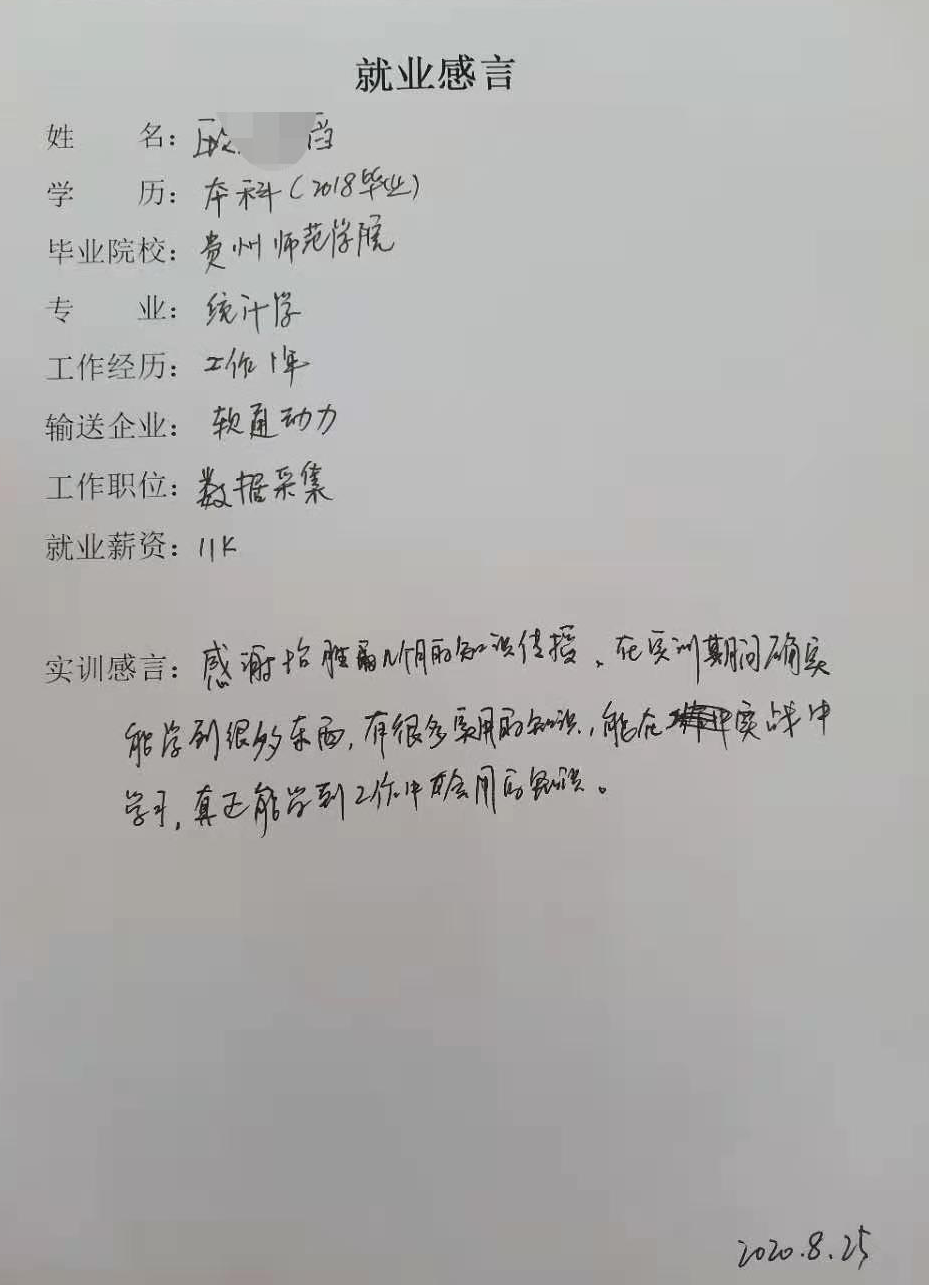 就业感言
姓 名：
学 历：本科（2018毕业）
毕业院校：贵州师范学院
专 业：统计学
工作经历：工作1年
输送企业：软通动力
工作职位：数据采集
就业薪资：11K
实训感言：感谢 几个月的知识传授，在实训期间确实
能学到很多东西，有很多实用的知识，能在实战中
学习，真正能学到工作中会用的知识。
2020.8.25